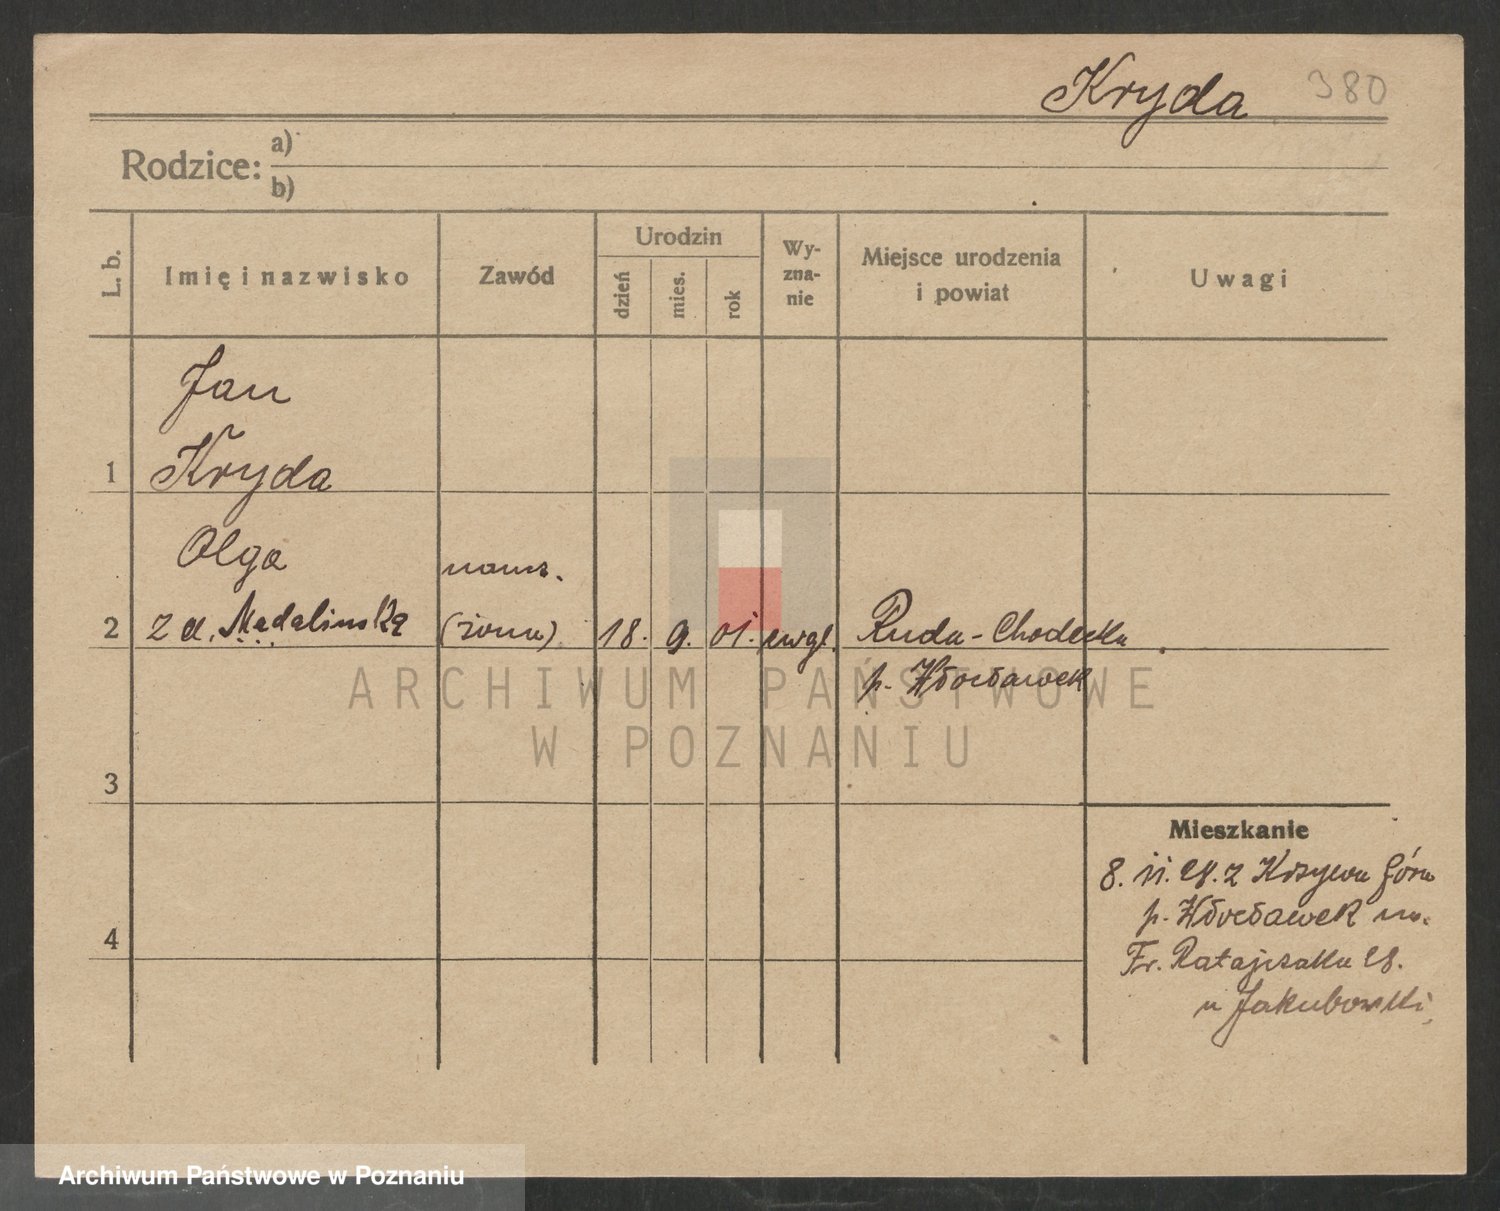 Kryda 380
Rodzice: a)
b)
L. b.
Imię i nazwisko
Zawód
Urodzin
dzień
mies.
rok
Wy-
zna-
nie
Miejsce urodzenia
i powiat
Uwagi
Jan
1 Kryda
Olga naucz.
2 z d. Madalińska (żona) 18. 9. 01. ewgl. Ruda-Chodecka
p. Włocławek
ARCHIWUM PAŃSTWOWE
W POZNANIU
3
Mieszkanie
8. 11. 28. z Krzywa Góra
p. Włocławek na
4
Fr. Ratajczaka 28.
u Jakubowski
Archiwum Państwowe w Poznaniu